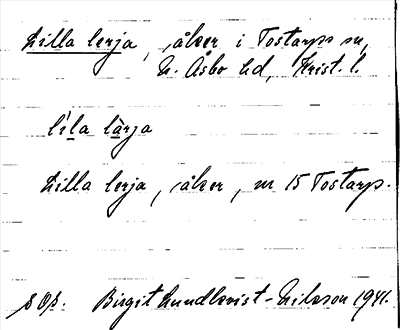 Lilla lerja, åker i Tostarps sn,
N. Åsbo hd, Krist. l.
lìla làrja
Lilla lerja, åker, nr 15 Tostarp.
s Og. Birgit Lundkvist-Nilsson 1941.